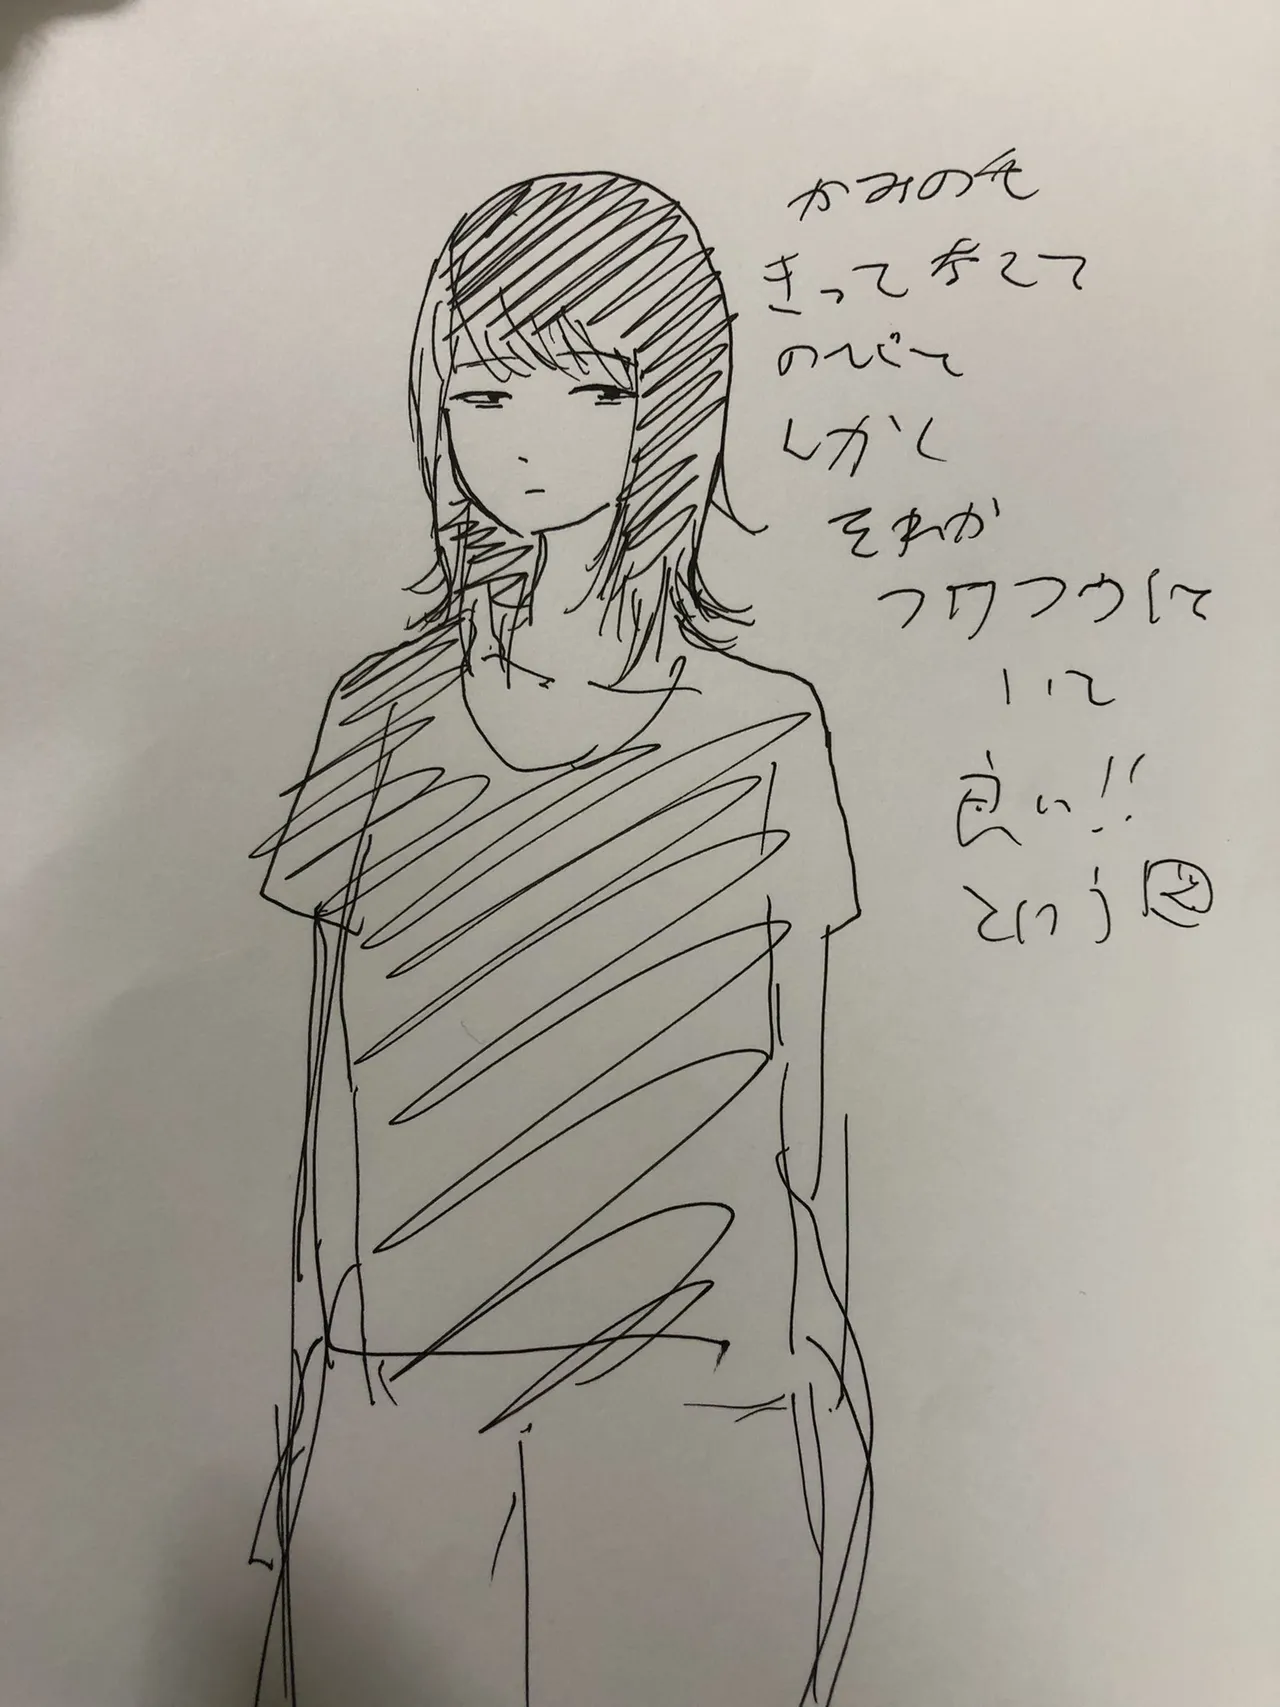 かみのも
きって考えて
のびて
しかし
それが
フワフワして
いて
良い!!
という